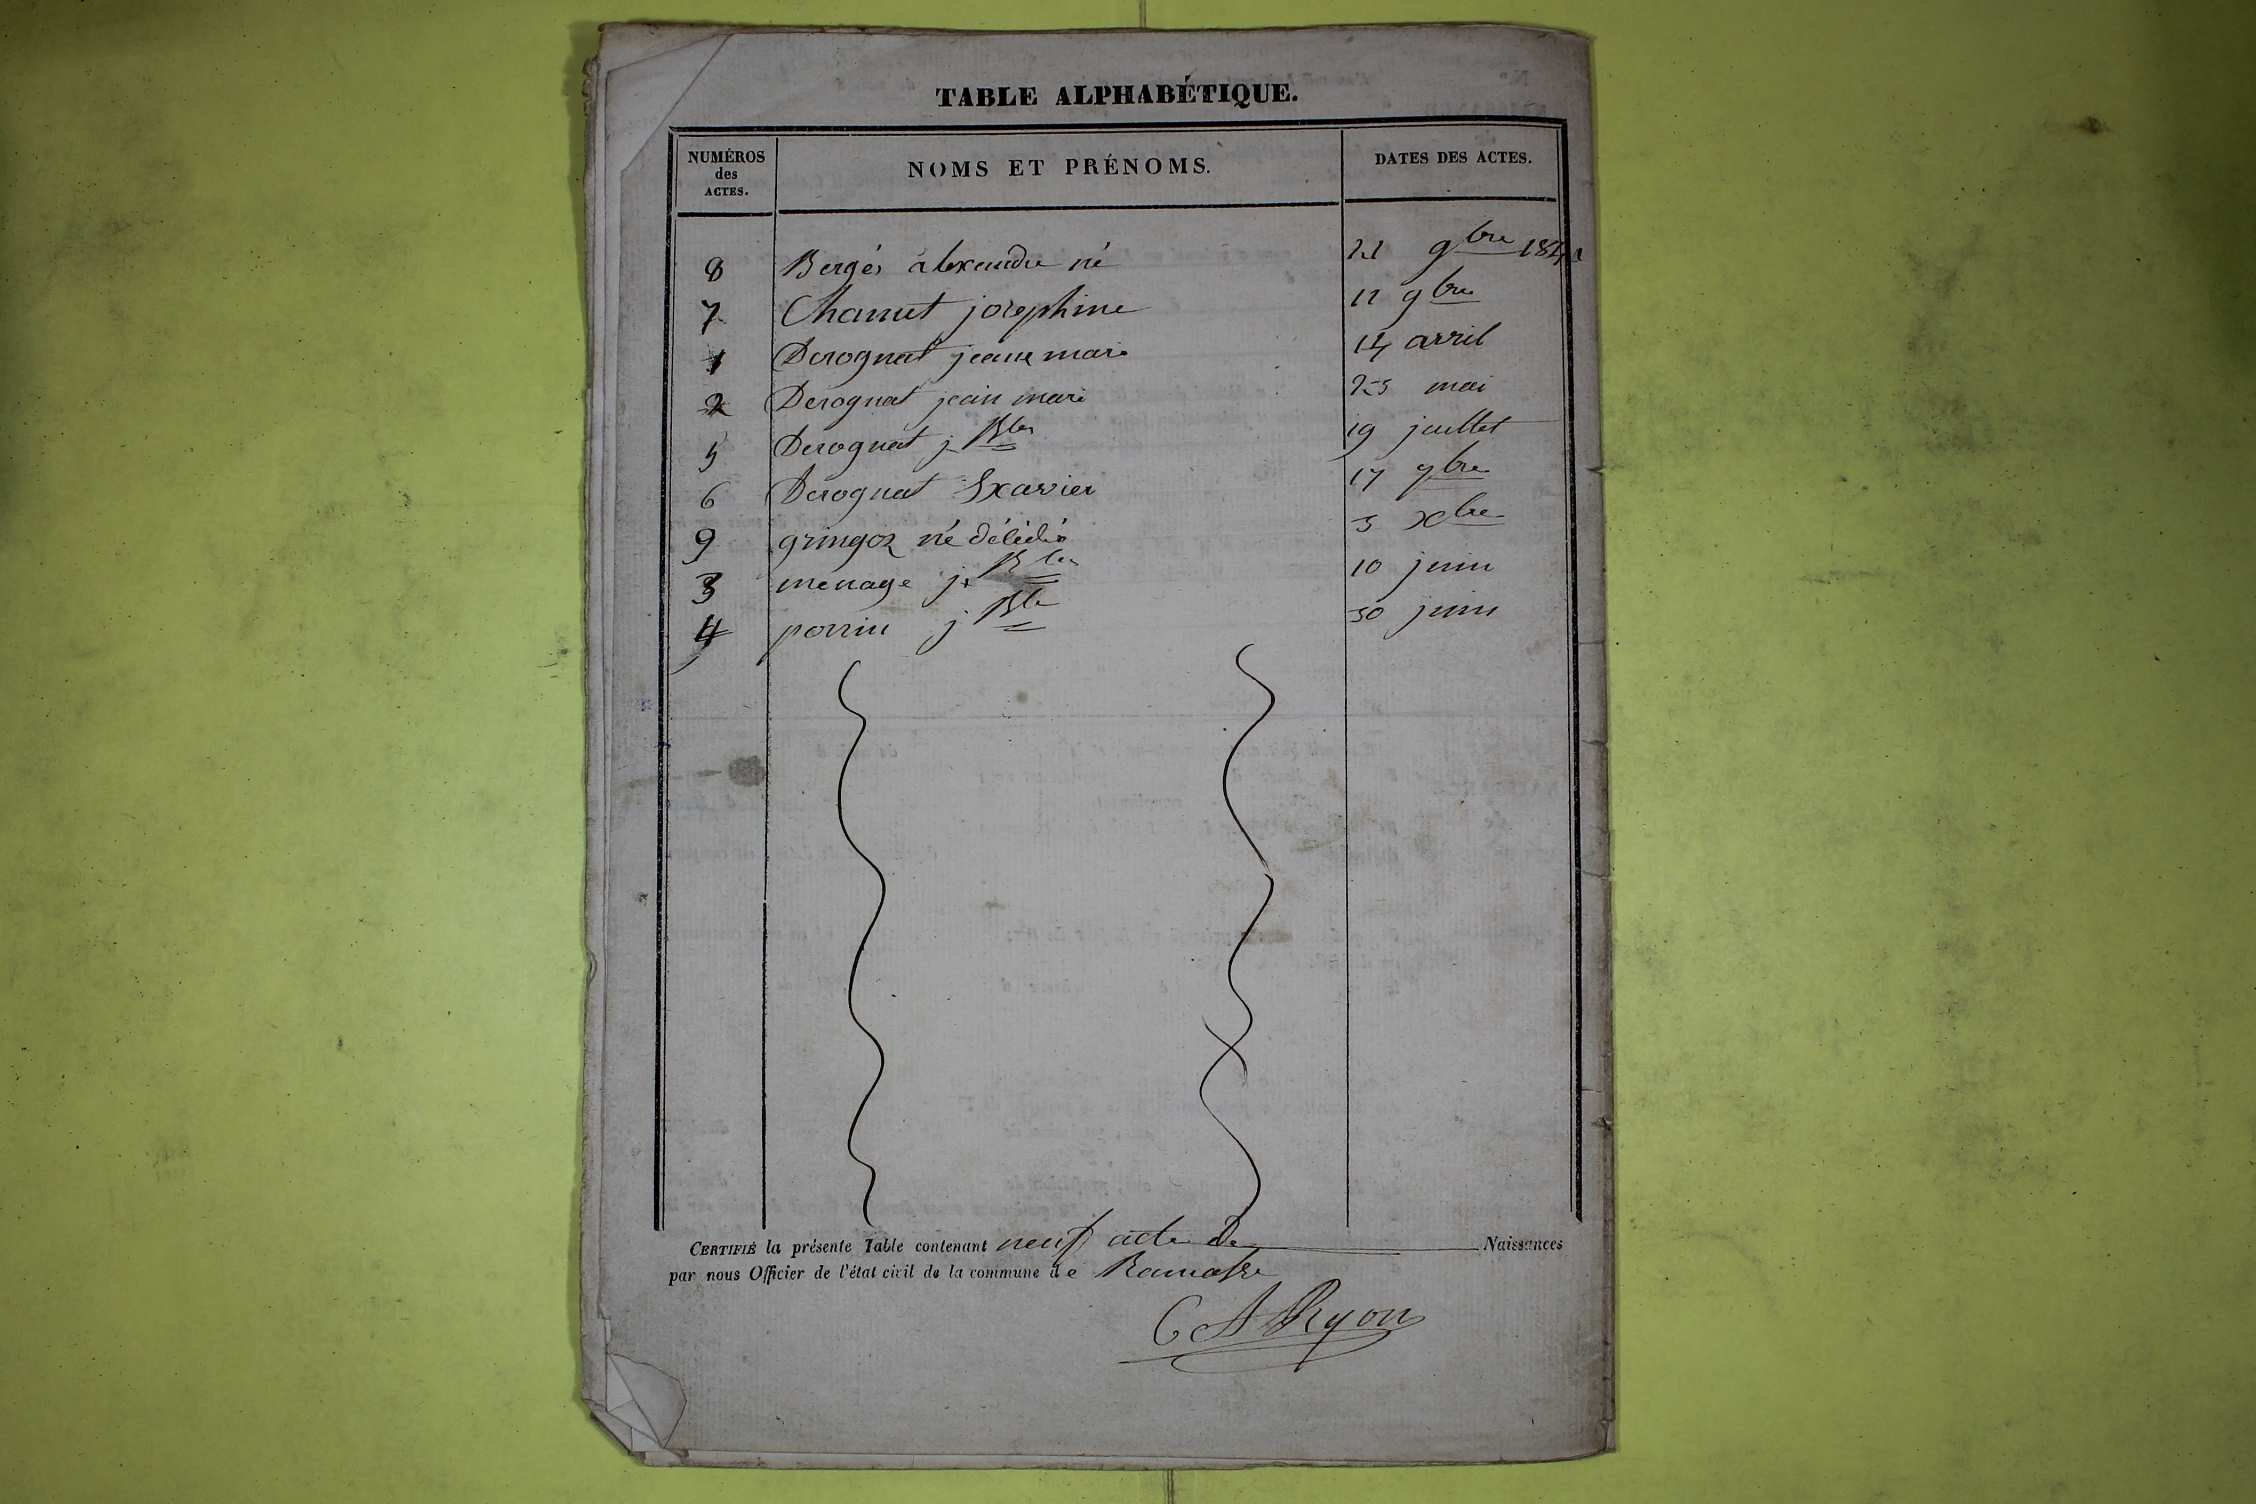 TABLE ALPHABÉTIQUE.
NUMÉROS des ACTES. NOMS ET PRÉNOMS. DATES DES ACTES.
8 Bergés alexandre né 21 9bre 1841
7 Chanut josephine 12 9bre
1 Derognat jeanne mari 14 avril
2 Derognat jean mari 25 mai
5 Derognat j Bte 19 juillet
6 Derognat Xavier 17 9bre
9 gringoz né 5 Xbre
3 menage j Bte 10 juin
4 perrin j Bte 30 juin
CERTIFIÉ la présente Table contenant neuf acte De Naissances
par nous Officier de l'état civil de la commune de Ramasse